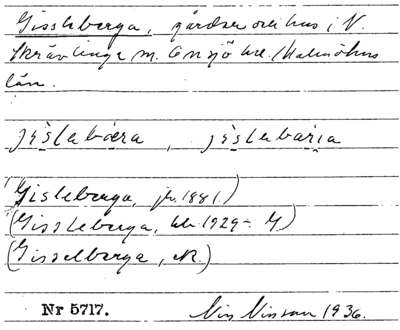 Gissleberga, gårdar och hus i V.
Skrävlinge m. Onsjö hd. Malmöhus
län.
jislabæra, jislabarja
(Gisleberga, jb. 1881.)
(Gissleberga, 1929- J)
(Gisselberga, R.)
Nr 5717. Nils Nilsson 1936.